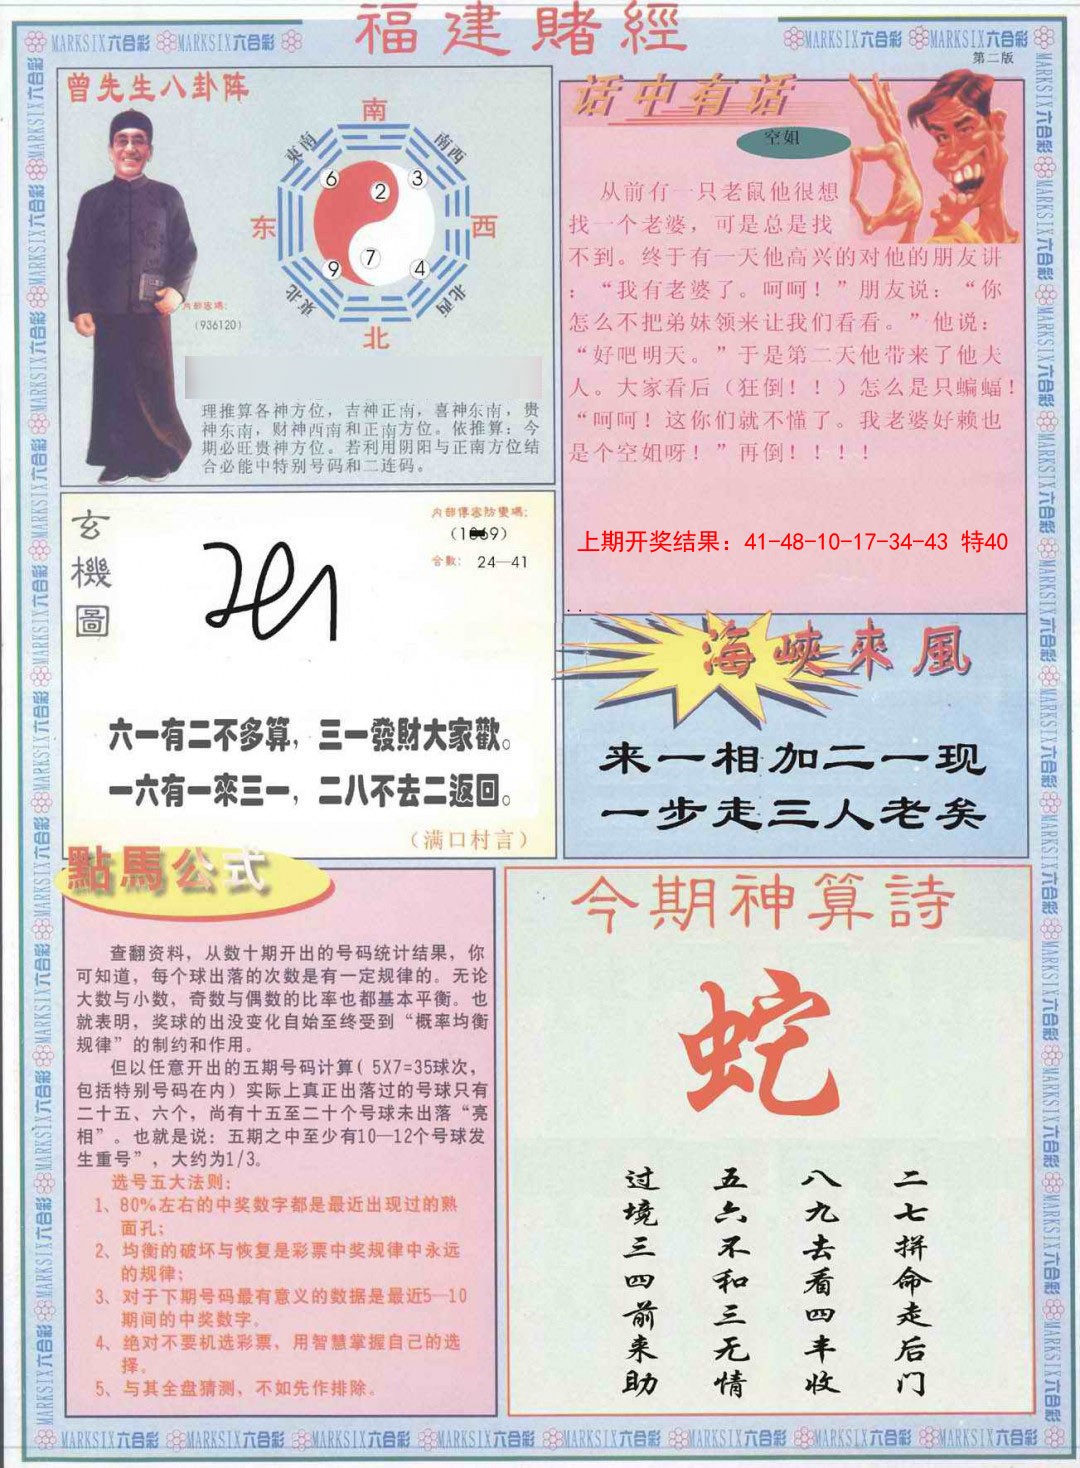 福建賭經
MARKSIX六合彩 MARKSIX六合彩 MARKSIX六合彩 MARKSIX六合彩
第二版
曾先生八卦阵
南
東南
南西
6
2
3
东
西
9
7
4
東北
北西
北
内部密碼：
（936120）
理推算各神方位，吉神正南，喜神东南，贵
神东南，财神西南和正南方位。依推算：今
期必旺贵神方位。若利用阴阳与正南方位结
合必能中特别号码和二连码。
话中有话
空姐
从前有一只老鼠他很想
找一个老婆，可是总是找
不到。终于有一天他高兴的对他的朋友讲
：“我有老婆了。呵呵！”朋友说：“你
怎么不把弟妹领来让我们看看。”他说：
“好吧明天。”于是第二天他带来了他夫
人。大家看后（狂倒！！）怎么是只蝙蝠！
“呵呵！这你们就不懂了。我老婆好赖也
是个空姐呀！”再倒！！！！
上期开奖结果：41-48-10-17-34-43 特40
玄機圖
合數： 24—41
六一有二不多算，三一發財大家歡。
一六有一來三一，二八不去二返回。
（满口村言）
海峽來風
来一相加二一现
一步走三人老矣
點馬公式
查翻资料，从数十期开出的号码统计结果，你
可知道，每个球出落的次数是有一定规律的。无论
大数与小数，奇数与偶数的比率也都基本平衡。也
就表明，奖球的出没变化自始至终受到“概率均衡
规律”的制约和作用。
但以任意开出的五期号码计算（5X7=35球次，
包括特别号码在内）实际上真正出落过的号球只有
二十五、六个，尚有十五至二十个号球未出落“亮
相”。也就是说：五期之中至少有10—12个号球发
生重号”，大约为1/3。
选号五大法则：
1、80%左右的中奖数字都是最近出现过的熟
面孔；
2、均衡的破坏与恢复是彩票中奖规律中永远
的规律；
3、对于下期号码最有意义的数据是最近5—10
期间的中奖数字。
4、绝对不要机选彩票，用智慧掌握自己的选
择。
5、与其全盘猜测，不如先作排除。
今期神算詩
蛇
二七拼命走后门
八九去看四丰收
五六不和三无情
过境三四前来助
MARKSIX六合彩 MARKSIX六合彩 MARKSIX六合彩 MARKSIX六合彩 MARKSIX六合彩 MARKSIX六合彩 MARKSIX六合彩 MARKSIX六合彩